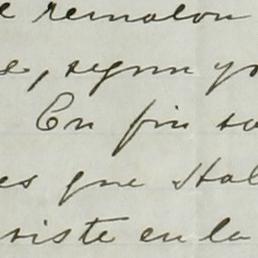 e remalon
e, segun yo
En fin so
es que Hal
siste en la